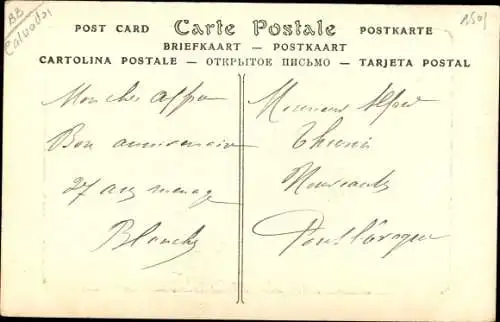 BB
Calvados
POST CARD Carte Postale POSTKARTE
BRIEFKAART — POSTKAART
CARTOLINA POSTALE — ОТКРЫТОЕ ПИСЬМО — TARJETA POSTAL
Mon cher
Bon anniversaire
27
Blanche
Monsieur Alfred
Nouveautés
Pont l'évêque